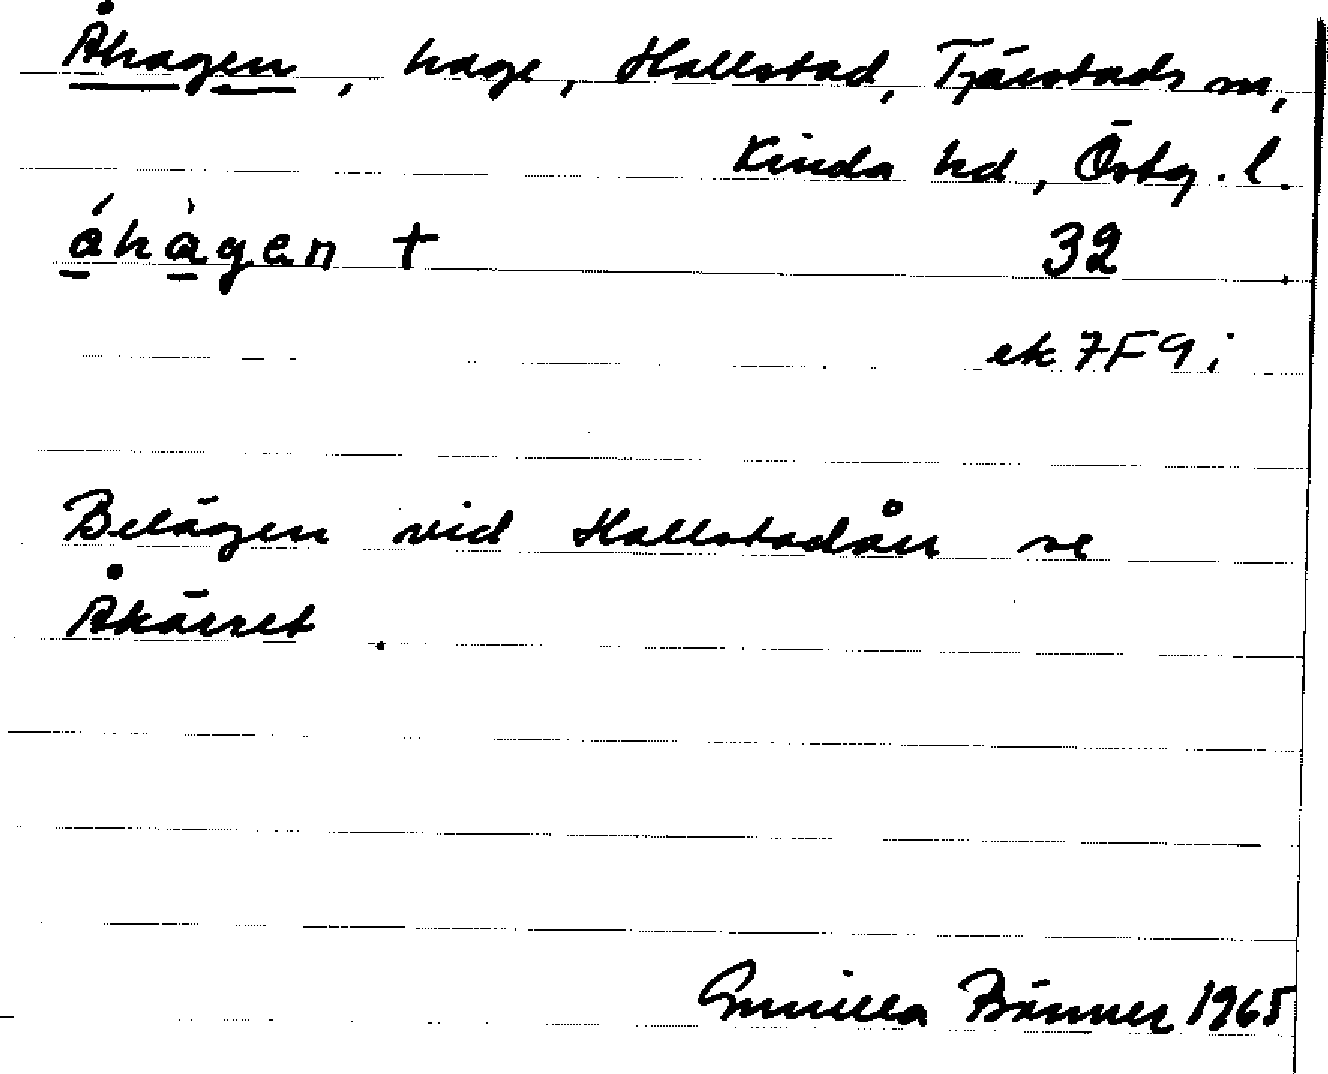 Åhagen, hage, Hallstad, Tjärstads sn,
Kinda hd, Östg. l.
ǻhàgen † 32
ek 7F9i
Belägen vid Hallstadån se
Åkärret.
Gunilla Bänner 1965